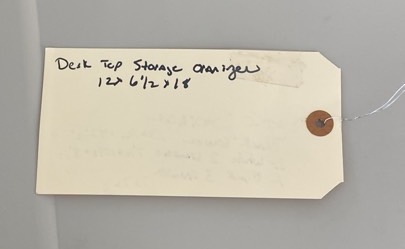 Desk Top Storage Oranizer
12x 6 1/2 x 18